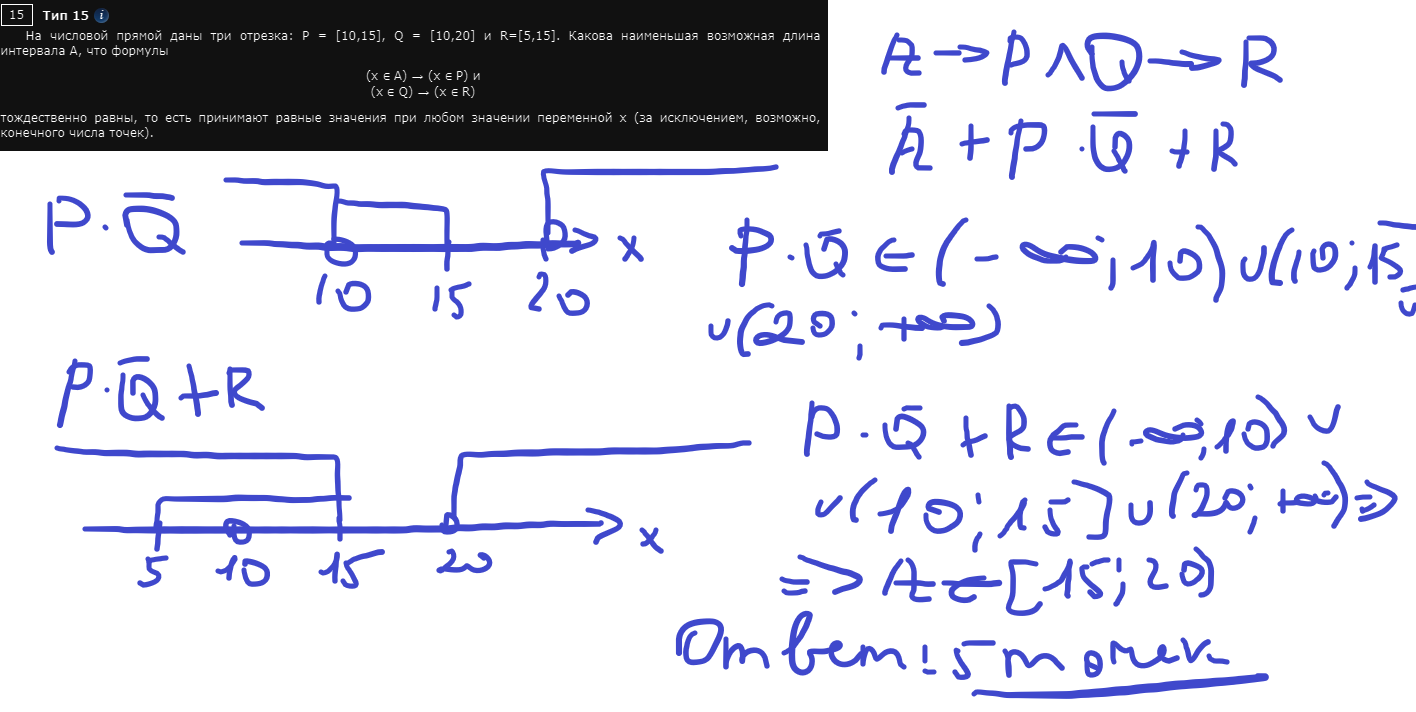 15 Тип 15 i
На числовой прямой даны три отрезка: P = [10,15], Q = [10,20] и R=[5,15]. Какова наименьшая возможная длина
интервала A, что формулы
(x ∈ A) → (x ∈ P) и
(x ∈ Q) → (x ∈ R)
тождественно равны, то есть принимают равные значения при любом значении переменной x (за исключением, возможно,
конечного числа точек).
A → P ∧ Q → R
A̅ + P · Q̅ + R
P · Q̅
x
10 15 20
P · Q̅ ∈ (-∞; 10) ∪ (10; 15]
∪ (20; +∞)
P · Q̅ + R
x
5 10 15 20
P · Q̅ + R ∈ (-∞; 10) ∪
∪ (10; 15] ∪ (20; +∞) =>
=> A ∈ [15; 20)
Ответ: 5 точек